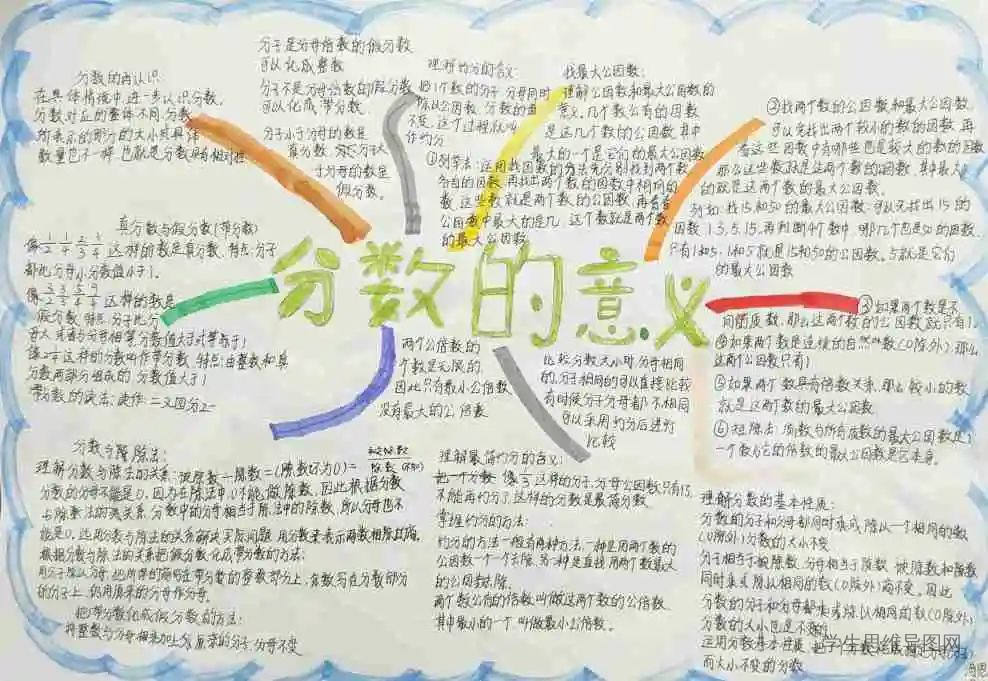 分数的再认识
在具体情境中,进一步认识分数,
分数对应的整体不同,分数
所表示的部分的大小或具体
数量也不一样,也就是分数具有相对性
分子是分母倍数的假分数
可以化成整数
分子不是分母倍数的假分数
可以化成带分数.
分子小于分母的数是
真分数,
分母的数是
假分数。
理解约分的含义:
把1个数的分子分母同时
除以公因数,分数的值
不变,这个过程就叫
作约分
找最大公因数:
理解公因数和最大公因数的
意义,几个数公有的因数
是这几个数的公因数,其中
最大的一个是它们的最大公因数
①列举法:运用找因数的方法先分别找到两个数
各自的因数,再找出两个数的因数中相同的因
数,这些数就是两个数的公因数,再看看
公因数中最大的是几,这个数就是两个数
的最大公因数
②找两个数的公因数和最大公因数,
可以先找出两个较小的数的因数,再
看这些因数中有哪些也是较大的数的因数
那么这些数就是这两个数的公因数,其中最大
的就是这两个数的最大公因数。
例如:找15和50的最大公因数:可以先找出15的
因数:1.3.5.15,再判断4个数中,哪几个也是50的因数,
只有1和5,1和5就是15和50的公因数。5就是它们
的最大公因数
真分数与假分数(带分数)
像1/2 1/4 2/3 3/4这样的数是真分数,特点:分子
都比分母小分数值小于1。
这样的数是
假分数,特点:分子比分
母大,或者与分母相等,分数值大于或等于1
这样的分数叫作带分数,特点:由整数和真
分数两部分组成的,分数值大于1
带分数的读法:
分数的意义
③如果两个数是不
同的质数,那么这两个数的公因数就只有1。
④如果两个数是连续的自然数(0除外),那么
这两个公因数只有1
⑤如果两个数具有倍数关系,那么较小的数
就是这两个数的最大公因数
⑥短除法:
一个数与它的倍数的最大公因数是它本身。
两个公倍数的
个数是无限的,
因此只有最小公倍数
没有最大的公倍数
比较分数大小时,分母相同
的,分子相同的可以直接比较
有时候分子分母都不相同
可以采用约分后进行
比较
分数与除法:
理解分数与除法的关系:被除数÷除数=
分数的分母不能是0,因为在除法中,0不能做除数,因此根据分数
与除法的关系,分数中的分母相当于除法中的除数,所以分母也不
能是0,运用分数与除法的关系解决实际问题,用分数来表示两数相除的商,
根据分数与除法的关系把假分数化成带分数的方法:
用分子除以分母,把所得的商写在带分数的整数部分上,余数写在分数部分
的分子上,仍用原来的分母作分母。
把带分数化成假分数的方法:
将整数与分母相乘加上分原来的分子,分母不变
理解最简约分的含义:
像1/3这样的分子,分母公因数只有1,
不能再约分,这样的分数是最简分数
掌握约分的方法:
约分的方法一般有两种方法,一种是用两个数的
公因数一个一个去除,另一种是直接用两个数最大
的公因数去除。
两个数公有的倍数叫做这两个数的公倍数,
其中最小的一个,叫做最小公倍数。
理解分数的基本性质:
分数的分子和分母都同时乘或除以一个相同的数
(0除外)分数的大小不变
分子相当于被除数,分母相当于除数,被除数和除数
同时乘或除以相同的数(0除外)商不变。因此
分数的分子和分母都乘或除以相同的数(0除外)
分数的大小也是不变的
运用分数基本性质,把一个分数化成
而大小不变的分数
学生思维导图网